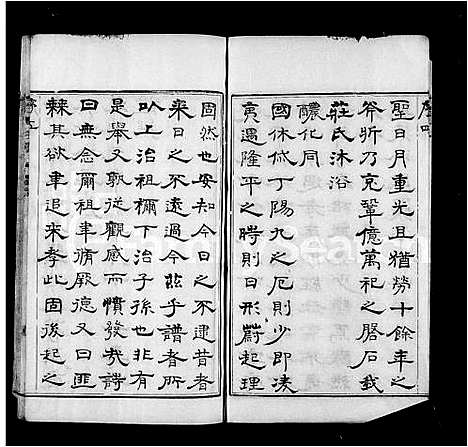 聖日月重光且猶勞十餘年之
斧斨乃克鞏億萬祀之磐石我
莊氏沐浴
醲化同
國休戚丁陽九之厄則少即凌
夷遇隆平之時則日形蔚起理
固然也安知今日之不逮昔者
來日之不遠過今茲乎譜者所
以上治祖禰下治子孫也非有
是舉又孰從觀感而憤發哉詩
曰無念爾祖聿脩厥德又曰匪
棘其欲聿追來孝此固後起之